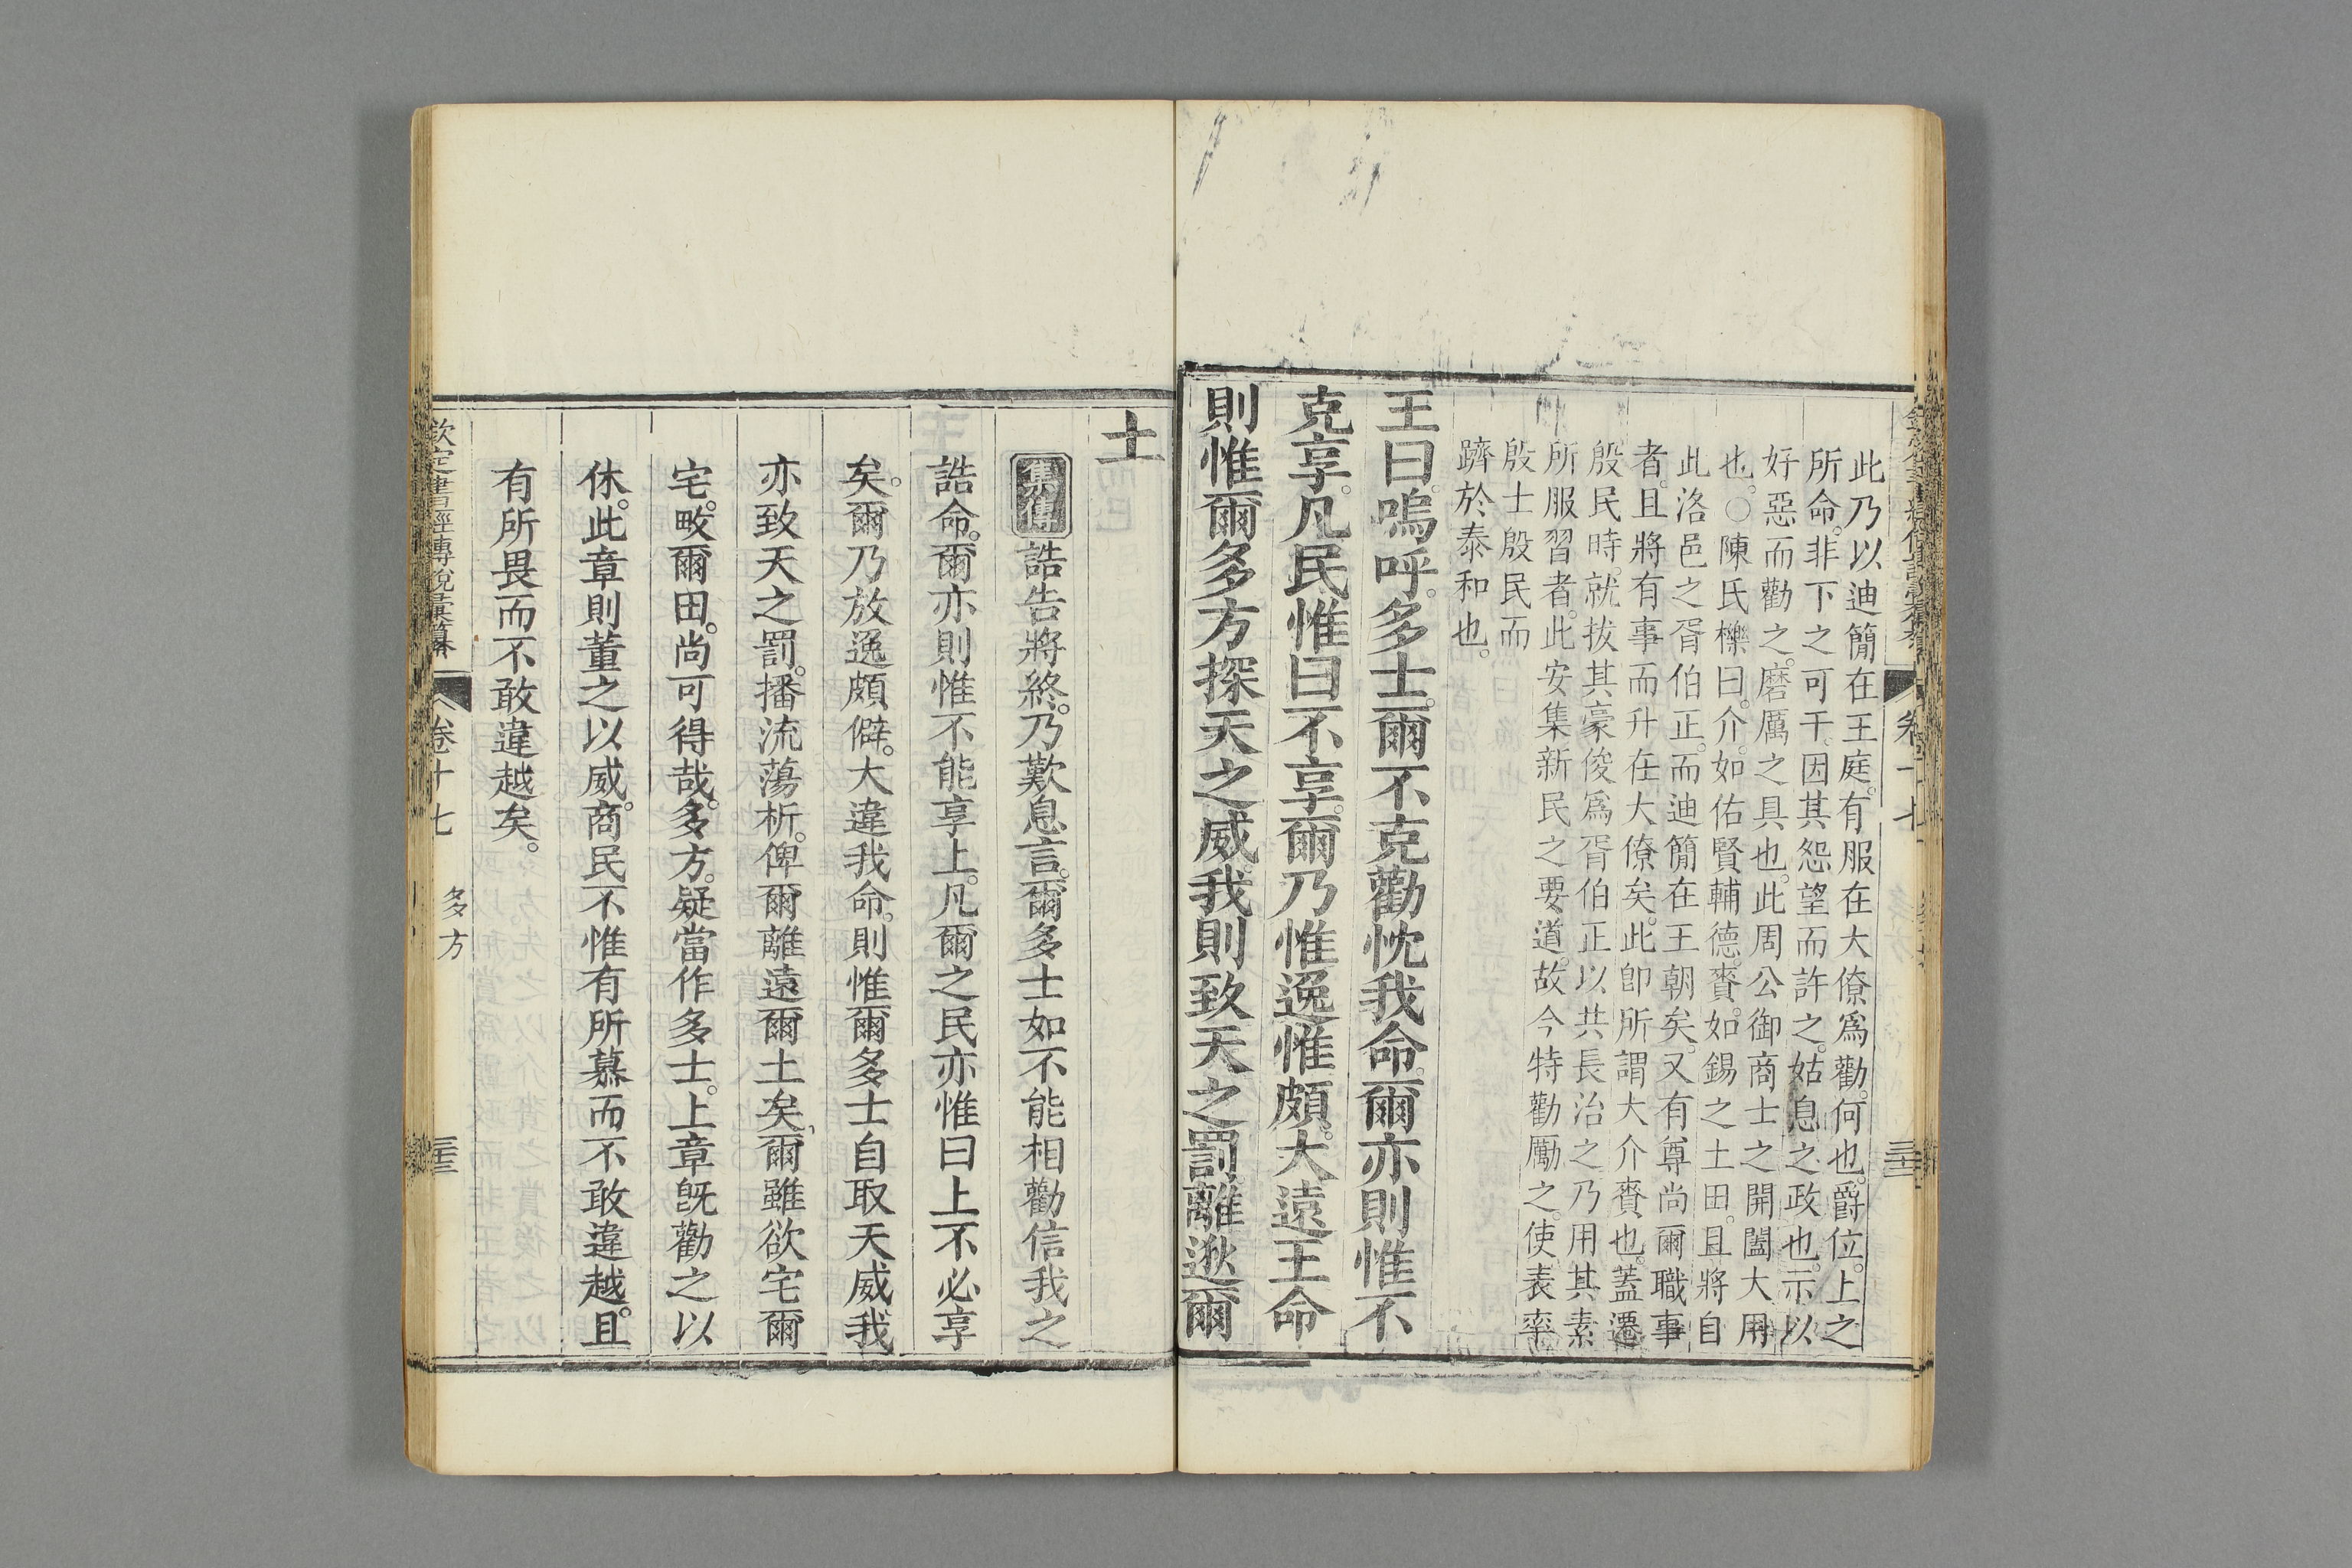 此乃以迪簡在王庭。有服在大僚爲勸。何也。爵位。上之
所命。非下之可干。因其怨望而許之。姑息之政也。示以
好惡而勸之。磨厲之具也。此周公御商士之開闔大用
也。○陳氏櫟曰。介。如佑賢輔德。賚。如錫之土田。且將自
此洛邑之胥伯正。而迪簡在王朝矣。又有尊尚爾職事
者。且將有事而升在大僚矣。此卽所謂大介賚也。蓋遷
殷民時。就拔其豪俊爲胥伯正以共長治之乃用其素
所服習者。此安集新民之要道。故今特勸勵之。使表率
殷士殷民而
躋於泰和也。
王曰。嗚呼。多士。爾不克勸忱我命。爾亦則惟不
克享。凡民惟曰不享。爾乃惟逸惟頗。大遠王命
則惟爾多方探天之威。我則致天之罰。離逖爾
土
集傳 誥告將終。乃歎息言。爾多士如不能相勸信我之
誥命。爾亦則惟不能享上。凡爾之民亦惟曰上不必享
矣。爾乃放逸頗僻。大違我命。則惟爾多士自取天威。我
亦致天之罰。播流蕩析。俾爾離遠爾土矣。爾雖欲宅爾
宅。畋爾田。尚可得哉。多方。疑當作多士。上章旣勸之以
休。此章則董之以威。商民不惟有所慕而不敢違越。且
有所畏而不敢違越矣。
欽定書經傳說彙纂
卷十七
多方